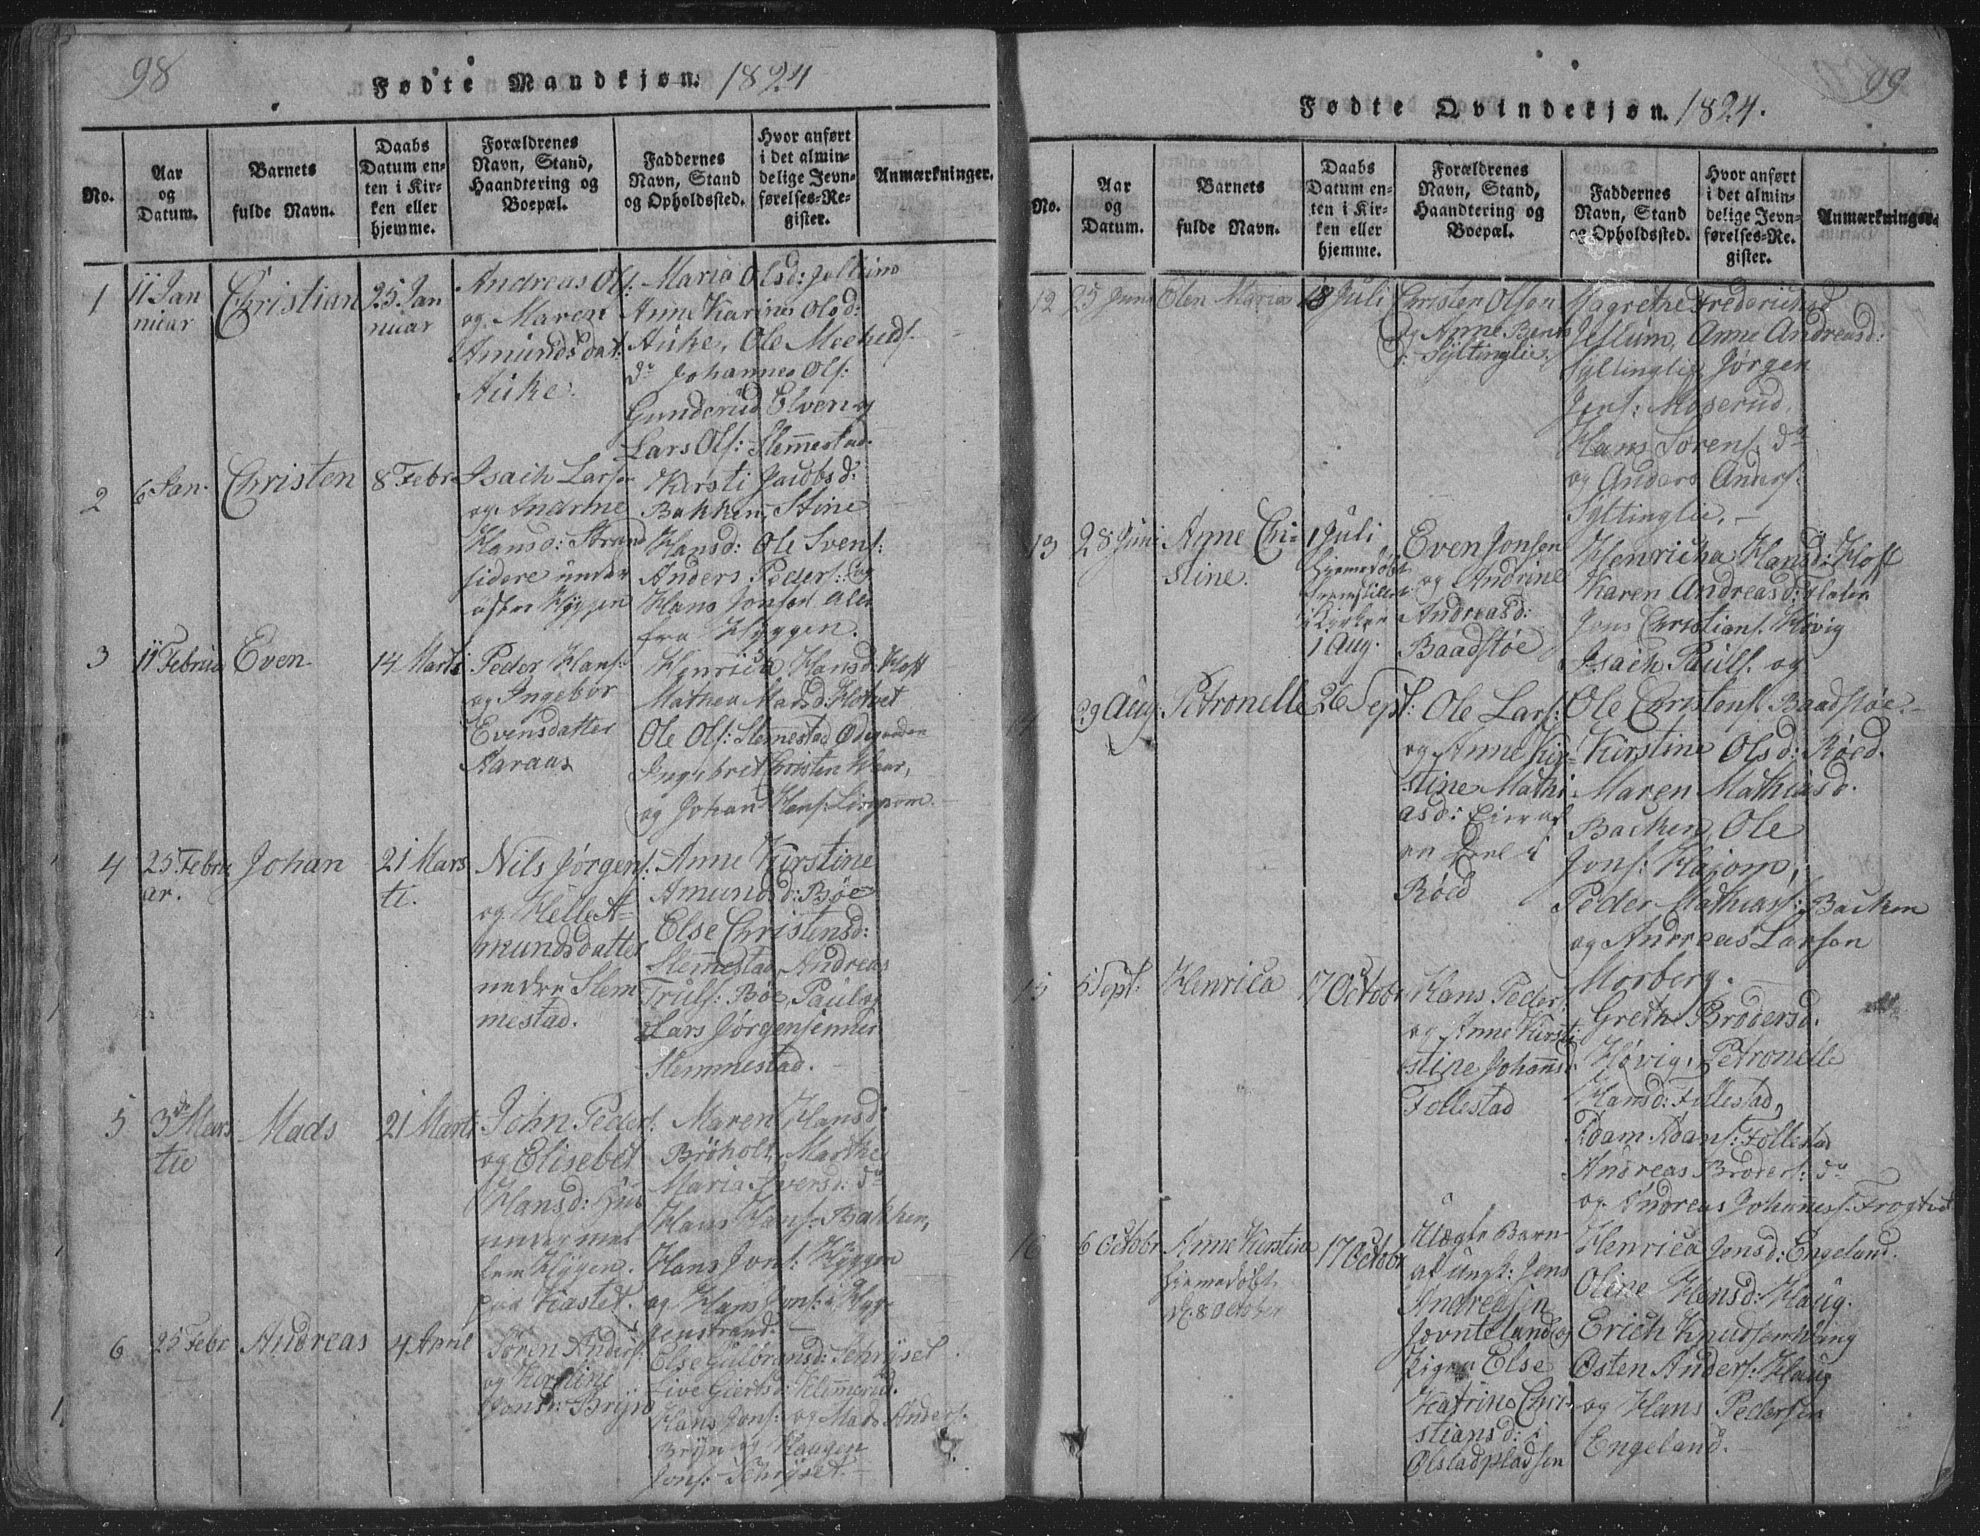 98
Fødte Mandkjøn. 1824
No.
Aar
og
Datum.
Barnets
fulde Navn.
Daabs
Datum en-
ten i Kir-
ken eller
hjemme.
Forældrenes
Navn, Stand,
Haandtering og
Boepæl.
Faddernes
Navn, Stand
og Opholdssted.
Hvor anført
i det almin-
delige Jevn-
førelses-Re-
gister.
Anmærkninger.
1
11 Jan
nuar
Christian
25 Jan
nuar
Andreas Ols:
og Maren
Amundsdat:
Auke.
Maria Olsd:
Anne Karine Olsd:
Auke, Ole
do Johannes Ols:
Gunderud Elven og
Lars Ols: Slemestad.
2
6 Jan.
Christen
8 Febr
Isach Larsen
og Andrine
Hansd: Strand
sidere under
østen Hyggen
Kirsti Jacobsd:
Bakken, Stine
Hansd: Ole Svens:
Anders Peders: og
Hans Jonsen alle
fra Hyggen.
3
11 Februa
Even
14 Marti
Peder Hans:
og Ingebor
Evensdatter
Aaraas
Henrica Hansd: Hoft
Mathea Madsd:
Ole Ols: Slemestad Ødegaarden
Ingebret Christen
og Johan Hens:
4
25 Febru
ar.
Johan
21 Mars
ti.
Nils Jørgens:
og Helle A-
mundsdatter
nedre Slem
mestad.
Anne Kirstine
Amundsd: Bøe
Else Christensd:
Slemestad, Andreas
Truls: Bøe, Paul og
Lars Jørgensenner
Slemmestad.
5
3de Mars
tii
Mads
21 Marti
John Peders:
og Elisebet
Hansd: Huus
under mel
lem Hygen.
paa Kastet.
Maren Hansd:
Brøholt, Marthe
Maria Iversd: do
Hans Hans: Bakken,
Hans Jons: Hyggen
og Hans Jons: i Hyg-
genstrand.
6
25 Febr
Andreas
4 April
Søren Anders:
og Kirstine
Jonsd: Brÿn
Else Gulbransd: Schrÿset
Live Giertsd: Klemmerud.
Hans Jons: og Mads Anders:
Brÿn og Haagen
Jons: Schrÿset.
99
Fødte Qvindekjøn. 1824.
No.
Aar
og
Datum.
Barnets
fulde Navn.
Daabs
Datum en-
ten i Kir-
ken eller
hjemme.
Forældrenes
Navn, Stand,
Haandtering og
Boepæl.
Faddernes
Navn, Stand
og Opholdssted.
Hvor anført
i det almin-
delige Jevn-
førelses-Re-
gister.
Anmærkninger.
12
25 Juni
Elen Maria
18 Juli
Christen Olsen
og Anne
Syltinglie.
Magrethe Frederichsd
Jellum, Anne Andreasd:
Syltinglie, Jørgen
Jens: Moserud,
Hans Sorens: do
og Anders Anders:
Syltinglie.
13
28 Juni
Anne Chri-
stine.
1 Juli
hjemmedøbt
fremstillet
i Kirken
1 Aug.
Even Jonsen
og Andrine
Andreasd:
Baadstøe
Henricha Hansd: Hoft
Karen Andreasd:
Jens Christians: Høvig
Isach Pauls: og
Ole Christens: Baadstøe.
14
29 Aug.
Petronelle
26 Sept:
Ole Lars:
og Anne Kir-
stine Mathi
asd: Eier af
en Deel i
Røed
Kirstine Olsd: Røed.
Maren Mathiasd.
Backen, Ole
Jons: Hajom,
Peder Mathias: Backen
og Andreas Larsen
Morberg.
15
5 Sept:
Henrica
17 Octobr
Hans Peder:
og Anne Kirsti
stine Johansd:
Follestad
Grethe Brodersd:
Høvig, Petronelle
Hansd: Follestad,
Adam Adams: Follestad
Andreas Broders: do
og Andreas Johannes: Frogtvet
16
6 Octobr
Anne Kirstine
hjemmedøbt
d. 8 October
17 Octobr
Uægte Barn
af ungk: Jens
Andreasen
og
Pigen Else
Katrine Chri-
stiansd: i
Olstadpladsen
Henrica Jensd: Engeland.
Oline Hansd: Haug.
Erich Knudsen Haug
Osten Anders: Haug
og Hans Pedersen
Engeland.